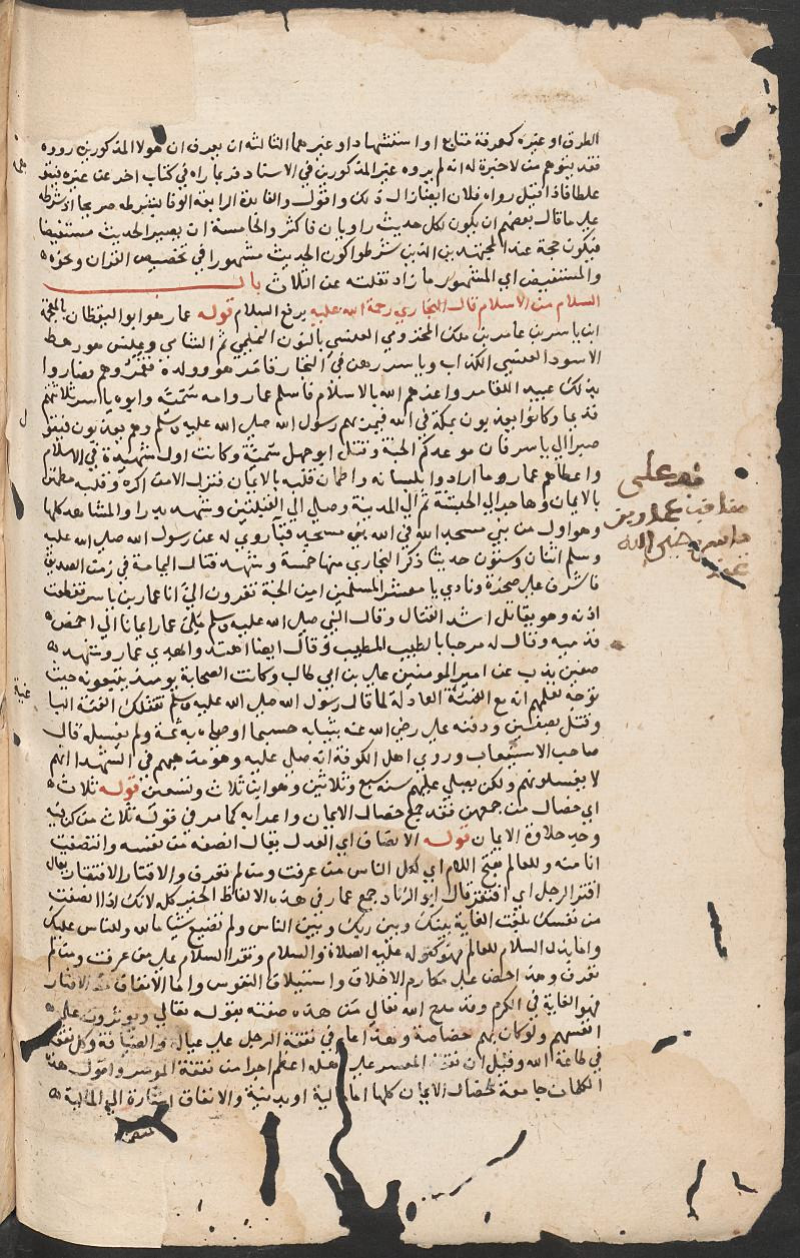 الطرق او غيره كمعرفة متابع او استشهاد او غيرهما الثالثة ان يعرف ان هولا المذكورين رووه
فقد يتوهم من لا خبرة له انه لم يروه غير المذكورين في الاسناد فربما راه في كتاب اخر عن غيره فيتوهم
غلطا فاذا قيل رواه فلان ايضا زال ذلك واقول والفايدة الرابعة الوفا بشرطه صريحا اذ شرطه
علي ما قال بعضهم ان يكون لكل حديث راويان فاكثر والخامسة ان يصير الحديث مستفيضا
فيكون حجة عند المجتهدين الذين شرطوا كون الحديث مشهورا في تخصيص القران ونحوه
والمستفيض اي المشهور ما زاد نقلته عن الثلاث باب
السلام من الاسلام قال البخاري رحمة الله عليه برفع السلام قوله عمار هو ابو اليقظان بالمعجمة
ابن ياسر بن عامر بن ملك المخزومي العنسي بالنون اليمني ثم الشامي وعنس هو رهط
الاسود العنسي الكذاب وياسر رهن في القمار فقامر هو وولده فقمروهم فصاروا
بذلك عبيد اللقامر واعزهم الله بالاسلام فاسلم عمار وامه سمية وابوه ياسر ثلاثتهم
قديما وكانوا يعذبون بمكة في الله فيمر بهم رسول الله صلي الله عليه وسلم وهم يعذبون فيقول
صبرا ال ياسر فان موعدكم الجنة وقتل ابو جهل سمية وكانت اول شهيدة في الاسلام
واعطاهم عمار وما ارادوا بلسانه واطمان قلبه بالايمان فنزل الا من اكره وقلبه مطمئن
بالايمان وهاجر الي الحبشة ثم الي المدينة وصلي الي القبلتين وشهد بدرا والمشاهد كلها
وهو اول من بني مسجدا لله في الله بني مسجد قبا روي له عن رسول الله صلي الله عليه
وسلم اثنان وستون حديثا ذكر البخاري منها خمسة وشهد قتال اليمامة في زمن الصديق
فاشرف علي صخرة ونادي يا معشر المسلمين امن الجنة تفرون اليّ انا عمار بن ياسر فقطعت
اذنه وهو يقاتل اشد القتال وقال النبي صلي الله عليه وسلم ملئ عمار ايمانا الي اخمص
قدميه وقال له مرحبا بالطيب المطيب وقال ايضا اهتدوا بهدي عمار وشهد
صفين يذب عن امير المومنين علي بن ابي طالب وكانت الصحابة يومئذ يتبعونه حيث
توجه لعلمهم انه مع الفئة العادلة لما قال رسول الله صلي الله عليه وسلم تقتلك الفئة الباغية
وقتل بصفين ودفنه علي رضي الله عنه بثيابه حسبما اوصاه به ثمة ولم يغسله قال
صاحب الاستيعاب وروي اهل الكوفة انه صلي عليه وهو مذهبهم في الشهدا انهم
لا يغسلونهم ولكن يصلي عليهم سنه سبع وثلاثين وهو ابن ثلاث وتسعين قوله ثلاث
اي خصال من جمعهن فقد جمع خصال الايمان واعرابه كما مر في قوله ثلاث من كن فيه
وجد حلاوة الايمان قوله الانصاف اي العدل يقال انصفه من نفسه وانتصفت
انا منه وللعالم بفتح اللام اي لكل الناس من عرفت ومن لم تعرف والاقتار الافتقار يقال
اقتر الرجل اي افتقر قال ابو الزناد جمع عمار في هذه الالفاظ الخير كله لانك اذا انصفت
من نفسك بلغت الغاية بينك وبين ربك وبين الناس ولم تضيع شيا مما لله وللناس عليك
واما بذل السلام للعالم فهو كقوله عليه الصلاة والسلام وتقرا السلام علي من عرفت ومن لم
تعرف وهذا حض علي مكارم الاخلاق واستيلاف النفوس واما الانفاق من الاقتار
فهو الغاية في الكرم وقد مدح الله تعالي من هذه صفته بقوله تعالي ويوثرون علي
انفسهم ولو كان بهم خصاصة وهذا عام في نفقة الرجل علي عياله والضيافة وكل نفقة
في طاعة الله وقيل ان نفقة المعسر علي اهله اعظم اجرا من نفقة الموسر واقول هذه
الكلمات جامعة لخصال الايمان كلها اما مالية او بدنية والانفاق اشارة الي المالية
قف علي
مناقب عمار بن
ياسر رضي الله